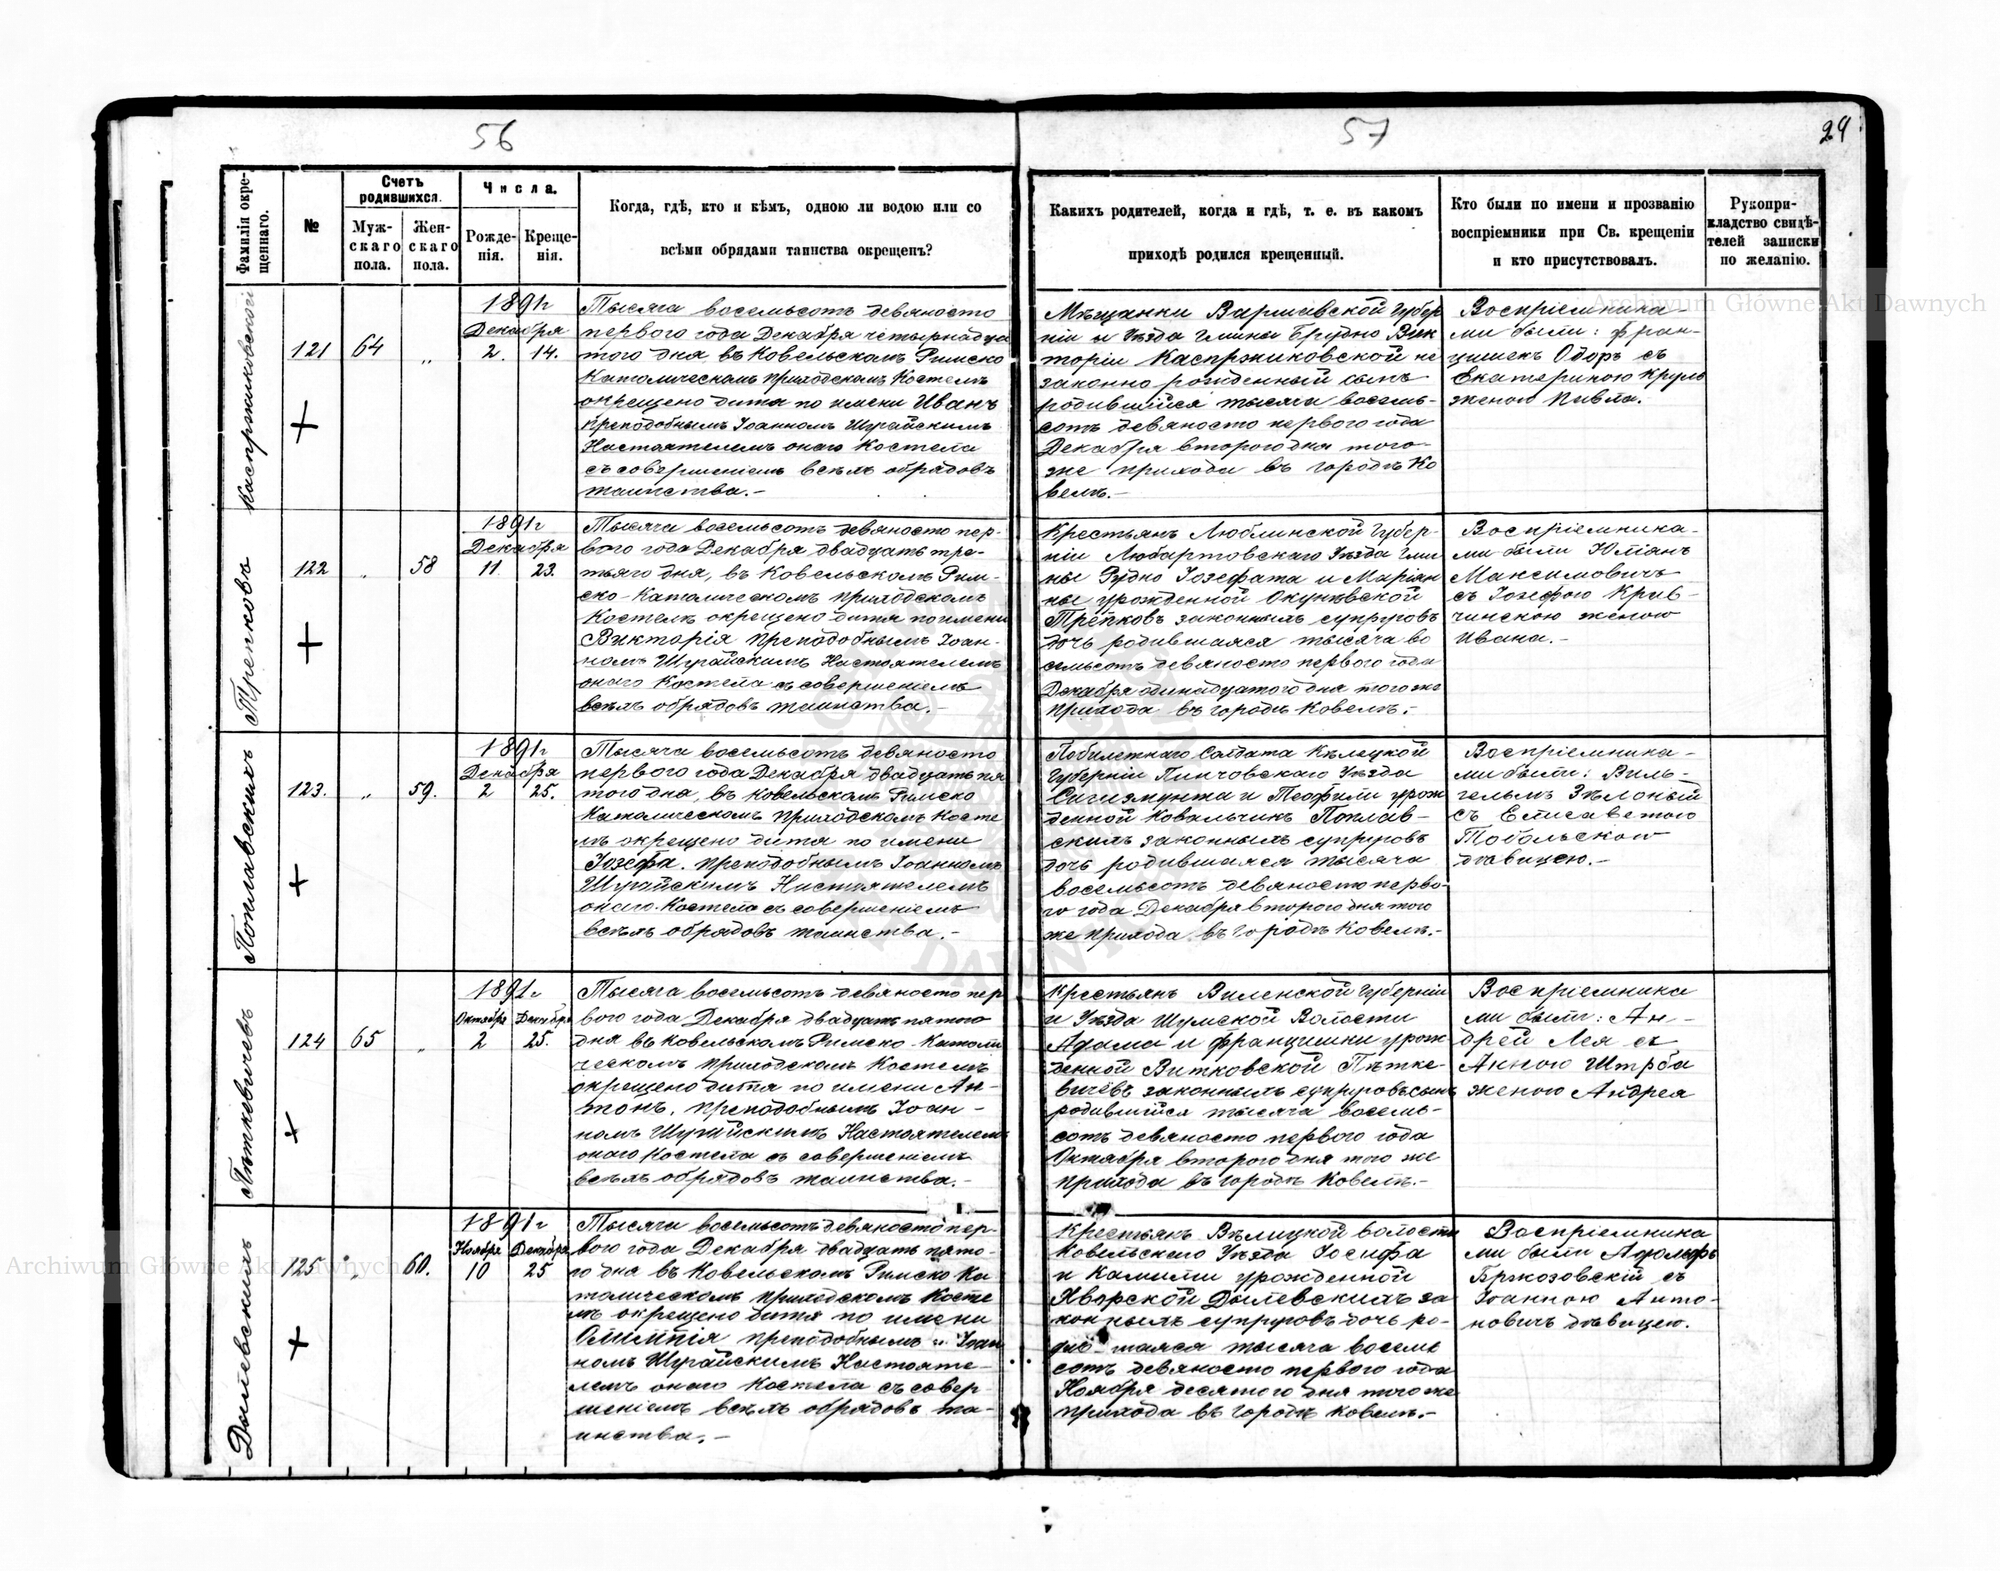 56
57
29
Фамилія окре-
щеннаго.
№
Счетъ
родившихся.
Муж-
скаго
пола.
Жен-
скаго
пола.
Числа.
Рожде-
нія.
Креще-
нія.
Когда, гдѣ, кто и кѣмъ, одною ли водою или со
всѣми обрядами таинства окрещенъ?
Какихъ родителей, когда и гдѣ, т. е. въ какомъ
приходѣ родился крещенный.
Кто были по имени и прозванію
воспріемники при Св. крещеніи
и кто присутствовалъ.
Рукопри-
кладство свидѣ-
телей записки
по желанію.
Каспржиковскогі
121
64
„
1891 г
Декабря
2. 14.
Тысяча восемьсотъ девяносто
первого года Декабря четырнадца
того дня въ Ковельскомъ Римско
Католическомъ приходскомъ Костелѣ
окрещено дитя по имени Иванъ
преподобнымъ Іоанномъ Шурайскимъ
Настоятелемъ онаго Костела
съ совершеніемъ всѣхъ обрядовъ
таинства.-
Мѣщанки Варшавской Губер
ніи и Уѣзда Гмины Брудно Вик
торіи Каспржиковской не
законно рожденный сынъ
родившійся тысяча восемь-
сотъ девяносто первого года
Декабря второго дня того-
же прихода въ городѣ Ко
велѣ.-
Воспріемника-
ми были: Фран-
цишекъ Одоръ съ
Екатериною Круль
женою Павла.
Трепкова
122
„
58
1891 г
Декабря
11 23.
Тысяча восемьсотъ девяносто пер-
вого года Декабря двадцать тре-
тьяго дня, въ Ковельскомъ Рим-
ско-Католическомъ приходскомъ
Костелѣ окрещено дитя по имени
Викторія преподобнымъ Іоан-
номъ Шурайскимъ Настоятелемъ
онаго Костела съ совершеніемъ
всѣхъ обрядовъ таинства.-
Крестьянъ Люблинской Губер-
ніи Любартовскаго Уѣзда Гми
ны Рудно Іозефата и Маріян
ны урожденной Окунѣвской
Трепковъ законныхъ супруговъ
дочь родившаяся тысяча во
семьсотъ девяносто первого года
Декабря одинадцатого дня того же
прихода въ городѣ Ковелѣ.-
Воспріемника-
ми были Юліанъ
Максимовичъ
съ Іозефою Крив-
чинскою женою
Ивана.-
Поплавскихъ
123.
„
59.
1891 г
Декабря
2 25.
Тысяча восемьсотъ девяносто
первого года Декабря двадцать пя
того дня, въ Ковельскомъ Римско
Католическомъ приходскомъ Косте
лѣ окрещено дитя по имени
Іозефа. преподобнымъ Іоанномъ
Шурайскимъ Настоятелемъ
онаго Костела съ совершеніемъ
всѣхъ обрядовъ таинства.-
Побилетнаго Солдата Кѣлецкой
Губерніи Пинчовскаго Уѣзда
Сигизмунта и Теофили урож
денной Ковальчикъ Поплав-
скихъ законныхъ супруговъ
дочь родившаяся тысяча
восемьсотъ девяносто перво-
го года Декабря второго дня того
же прихода въ городѣ Ковелѣ.-
Воспріемника-
ми были: Виль-
гельмъ Зѣлоный
съ Елисаветою
Тобольскою
дѣвицею.-
Пѣткевичевъ
124
65
„
1891 г
Октября Декабря
2 25.
Тысяча восемьсотъ девяносто пер
вого года Декабря двадцать пятого
дня въ Ковельскомъ Римско-Католи
ческомъ приходскомъ Костелѣ
окрещено дитя по имени Ан-
тонъ, преподобнымъ Іоан-
номъ Шурайскимъ Настоятелем
онаго Костела съ совершеніемъ
всѣхъ обрядовъ таинства.-
Крестьянъ Виленской Губерніи
и Уѣзда Шумской Волости
Адама и Францишки урож
денной Витковской Пѣтке-
вичевъ законныхъ супруговъ сынъ
родившійся тысяча восемь-
сотъ девяносто первого года
Октября второго дня того же
прихода въ городѣ Ковелѣ.-
Воспріемника
ми были: Ан-
дрей Лея съ
Анною Штрба
женою Андрея
Дылевскихъ
125
„
60.
1891 г
Ноября Декабря
10 25
Тысяча восемьсотъ девяносто пер-
вого года Декабря двадцать пято-
го дня въ Ковельскомъ Римско Ка
толическомъ приходскомъ Косте
лѣ окрещено дитя по имени
Олимпія преподобнымъ Іоан
номъ Шурайскимъ Настояте-
лемъ онаго Костела съ совер-
шеніемъ всѣхъ обрядовъ та-
инства.-
Крестьянъ Вѣлицкой волости
Ковельскаго Уѣзда Іосифа
и Камили урожденной
Яворской Дылевскихъ за
конныхъ супруговъ дочь ро-
див шаяся тысяча восемь
сотъ девяносто первого года
Ноября десятого дня того же
прихода въ городѣ Ковелѣ.-
Воспріемника
ми были Адольфъ
Бржозовскій съ
Іоанною Анто-
новичъ дѣвицею.
Archiwum Główne Akt Dawnych
Archiwum Główne Akt Dawnych